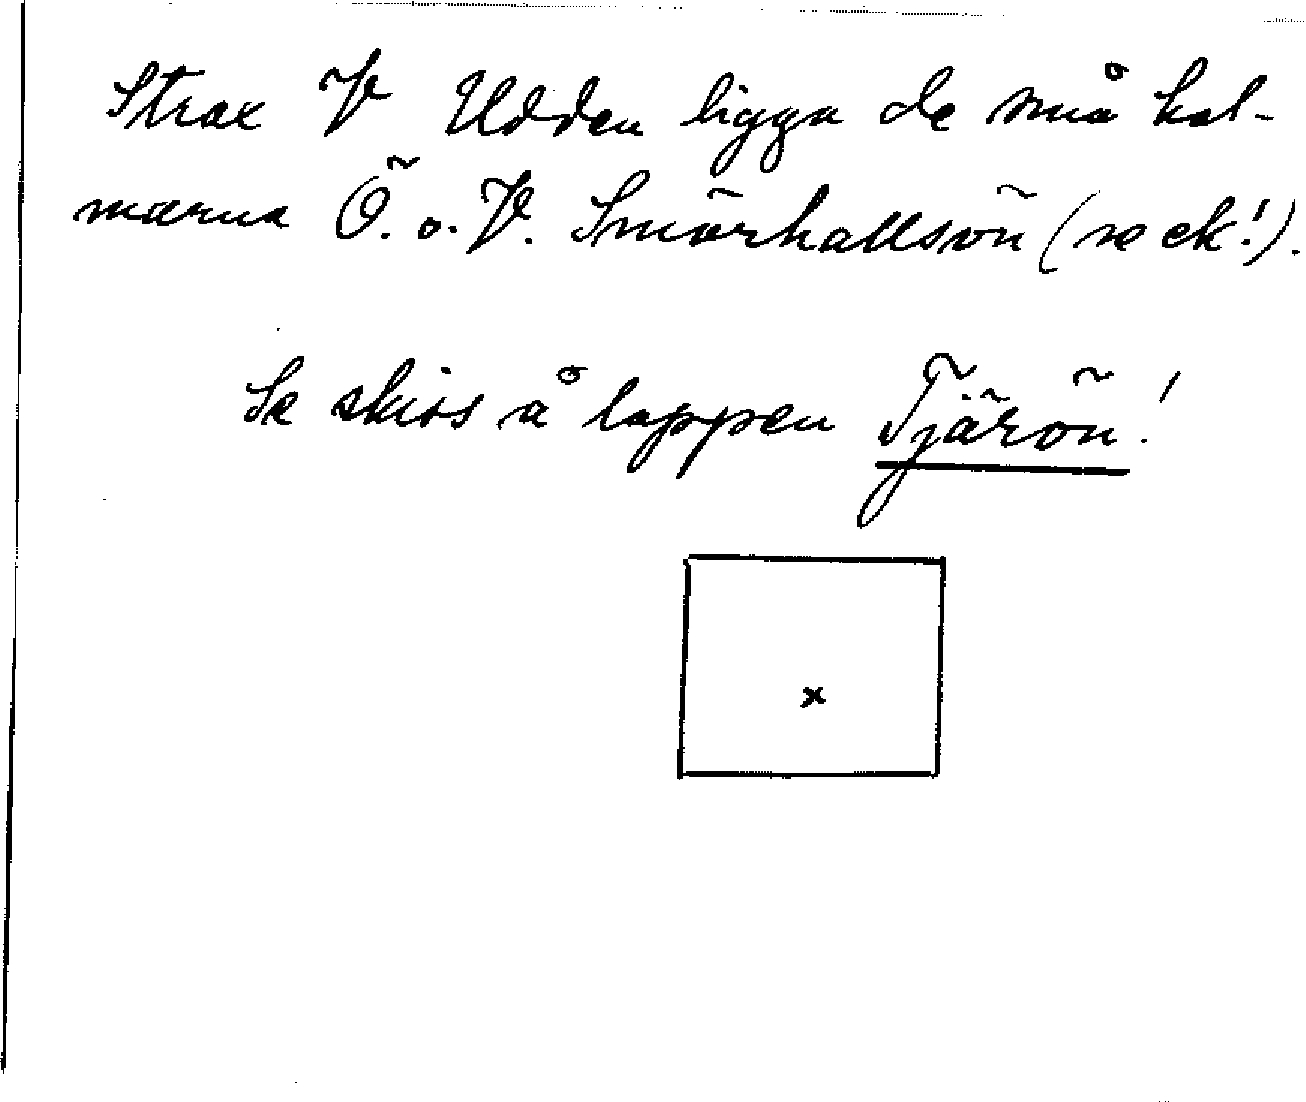 Strax V Udden ligga de små hol-
marna Ö. o. V. Smörhallsön (se ek!).
Se skiss å lappen Tjärön!
x